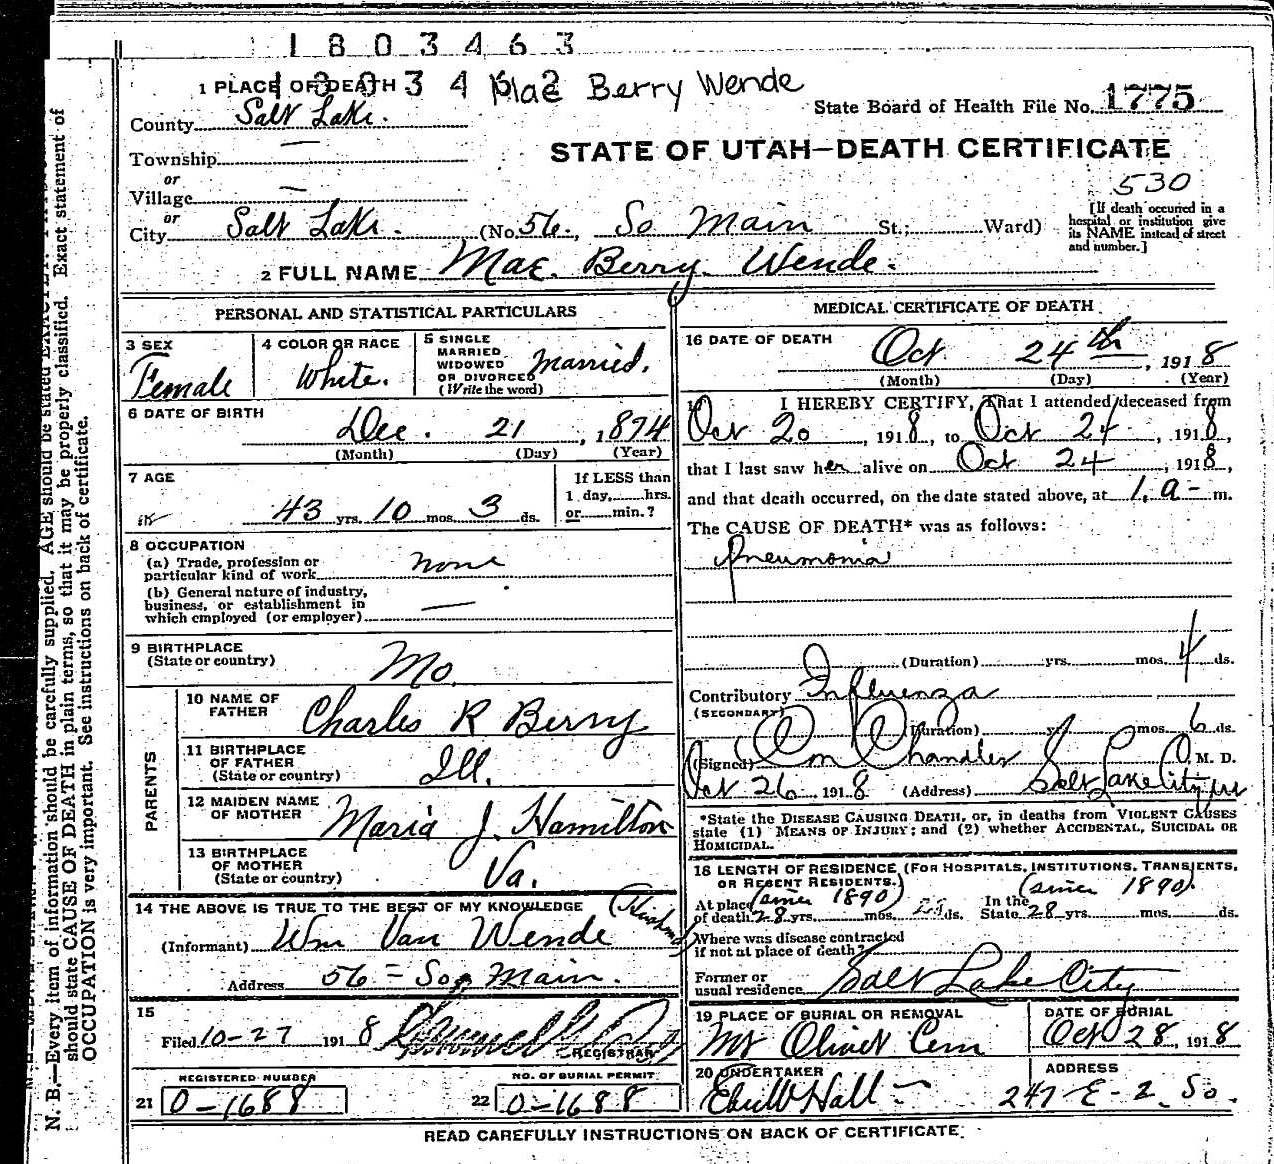 1803463
1 PLACE OF DEATH Mae Berry Wende
State Board of Health File No. 1775
County Salt Lake.
STATE OF UTAH—DEATH CERTIFICATE
Township —
or
530
Village —
or
City Salt Lake. (No. 56., So Main St.; Ward)
[If death occurred in a hospital or institution give its NAME instead of street and number.]
2 FULL NAME Mae. Berry. Wende.
PERSONAL AND STATISTICAL PARTICULARS
3 SEX
Female
4 COLOR OR RACE
White.
5 SINGLE MARRIED WIDOWED OR DIVORCED (Write the word) Married.
6 DATE OF BIRTH
Dec. 21, 1874
(Month) (Day) (Year)
7 AGE
43 yrs. 10 mos. 3 ds.
If LESS than
1 day, hrs.
or min.?
8 OCCUPATION
(a) Trade, profession or
particular kind of work none
(b) General nature of industry,
business, or establishment in
which employed (or employer) —
9 BIRTHPLACE
(State or country) Mo.
PARENTS
10 NAME OF FATHER Charles R Berry
11 BIRTHPLACE OF FATHER (State or country) Ill.
12 MAIDEN NAME OF MOTHER Maria J. Hamilton
13 BIRTHPLACE OF MOTHER (State or country) Va.
14 THE ABOVE IS TRUE TO THE BEST OF MY KNOWLEDGE
(Informant) Wm Van Wende
Address 56 - So. Main.
15
Filed 10-27 1918
REGISTRAR
REGISTERED NUMBER
21 0-1688
NO. OF BURIAL PERMIT
22 0-1688
MEDICAL CERTIFICATE OF DEATH
16 DATE OF DEATH
Oct 24th, 1918
(Month) (Day) (Year)
I HEREBY CERTIFY, That I attended deceased from
Oct 20, 1918, to Oct 24, 1918,
that I last saw her alive on Oct 24, 1918,
and that death occurred, on the date stated above, at 1.a- m.
The CAUSE OF DEATH* was as follows:
Pneumonia
(Duration) yrs. mos. 4 ds.
Contributory Influenza
(SECONDARY)
(Duration) yrs. mos. 6 ds.
(Signed) Chandler M. D.
Oct 26, 1918 (Address) Salt Lake City
*State the DISEASE CAUSING DEATH, or, in deaths from VIOLENT CAUSES
state (1) MEANS OF INJURY; and (2) whether ACCIDENTAL, SUICIDAL OR
HOMICIDAL.
18 LENGTH OF RESIDENCE (FOR HOSPITALS, INSTITUTIONS, TRANSIENTS,
OR RECENT RESIDENTS.)
(since 1890) (since 1890)
At place of death 28 yrs. mos. ds. In the State 28 yrs. mos. ds.
Where was disease contracted
if not at place of death?
Former or
usual residence Salt Lake City
19 PLACE OF BURIAL OR REMOVAL
Mt Olivet Cem
DATE OF BURIAL
Oct 28, 1918
20 UNDERTAKER
Hall
ADDRESS
247 E-2. So.
READ CAREFULLY INSTRUCTIONS ON BACK OF CERTIFICATE.
N. B.—Every item of information should be carefully supplied. AGE should be stated EXACTLY.
should state CAUSE OF DEATH in plain terms, so that it may be properly classified. Exact statement of
OCCUPATION is very important. See instructions on back of certificate.